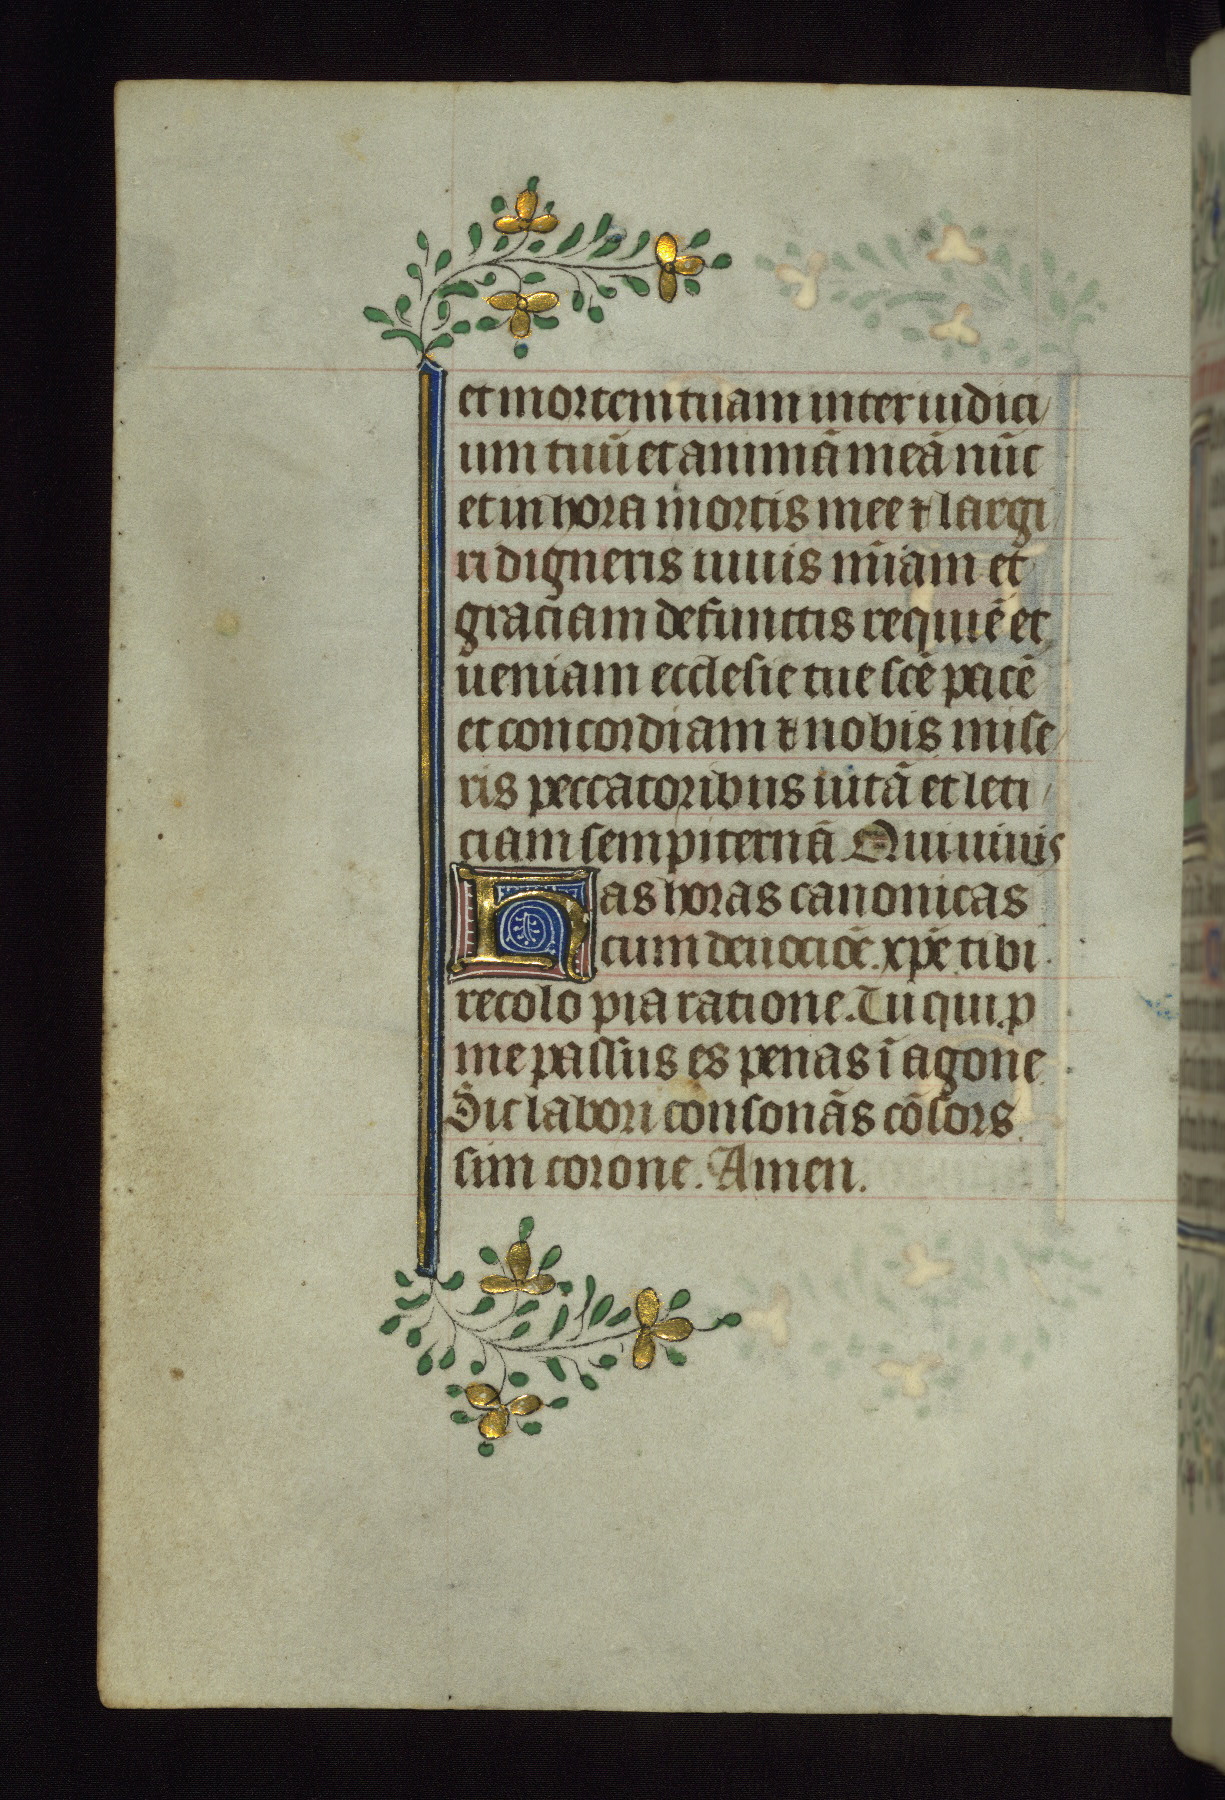 et mortem tuam inter iudici/
um tuū et animā meā nūc
et in hora mortis mee ⁊ largi
ri digneris uiuis mīam et
graciam defunctis requiē et
ueniam ecclesie tue scē pacē
et concordiam ⁊ nobis mise/
ris peccatoribus uitā et leti/
ciam sempiternā Qui uiuis
Has horas canonicas
cum deuocioē. xpē tibi
recolo pia ratione. Tu qui. p
me passus es penas ī agone
Sit labori consonās cōsors.
sim corone. Amen.